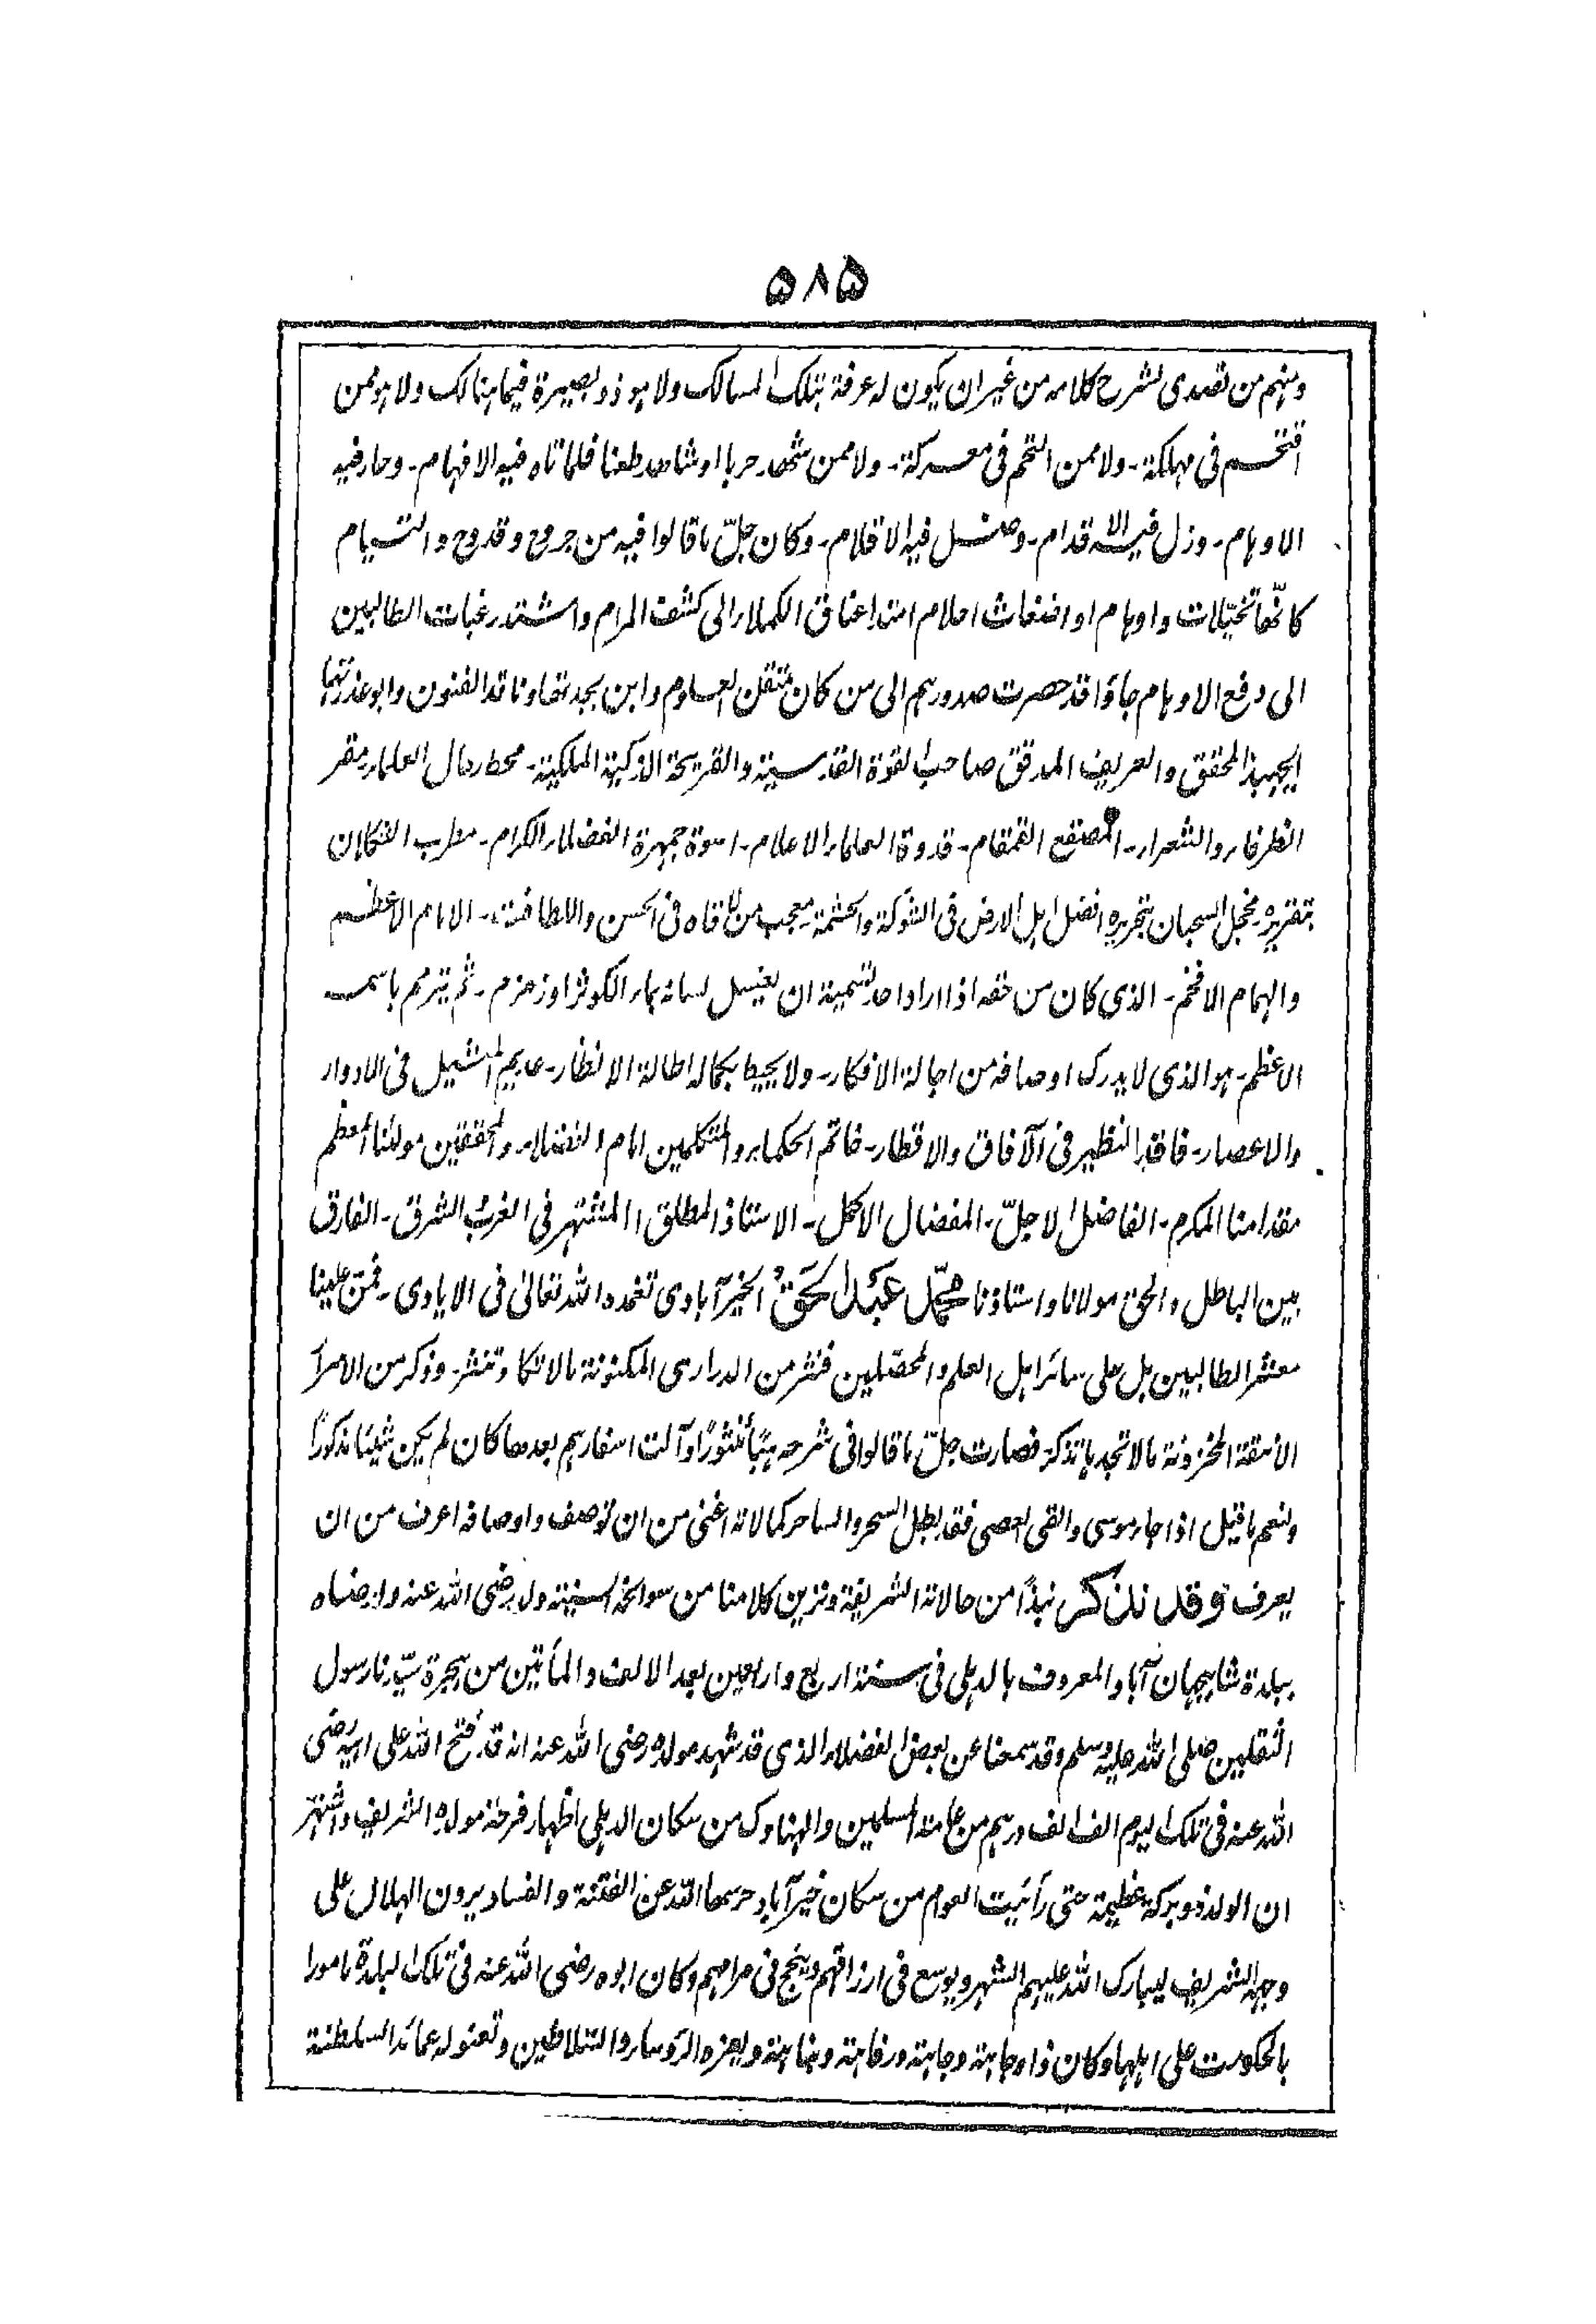 ۵۸۵
ومنهم من تصدى لشرح كلامه من غير ان يكون له عرفة بتلك المسالك ولا هو ذو بصيرة فيما هنالك ولا هو ممن
اقتحم فى مهلكة۔ ولا ممن التحم فى معركة۔ ولا ممن شهد حربا او شاهد طعنا فلما تاه فيه الافهام۔ وحار فيه
الاوهام۔ وزل فيه الاقدام۔ وضل فيه الاقلام۔ وكان جلّ ما قالوا فيه من جروح وقدوح والتيام
كانّها تخيّلات واوهام او اضغاث احلام امتد اعناق الكملاء الى كشف المرام واشتد رغبات الطالبين
الى دفع الاوهام جاؤا قد حصرت صدورهم الى من كان متقن العلوم وابن بجدتها وناقد الفنون وابو عذرتها
الجهبذ المحقق والعريف المدقق صاحب القوة القدسية والقريحة الذكية الملكية۔ محط رحال العلماء مقر
الظرفاء والشعراء۔ المصقع القمقام۔ قدوة العلماء الاعلام۔ اسوة جمهرة الفضلاء الكرام۔ مطرب الثكلان
بتقريره۔ مخجل السحبان بتحريره افضل اهل الارض فى الشوكة والحشمة۔ معجب من لاقاه فى الحسن واللطافة۔ الامام الاعظم
والهمام الافخم۔ الذى كان من حقه اذا اراد احد تسميته ان يغسل لسانه بماء الكوثر او زمزم۔ ثم يترنم باسمه
الاعظم۔ هو الذى لا يدرك اوصافه من اجالة الافكار۔ ولا يحيط بكماله اطالة الانظار۔ عديم المثيل فى الادوار
والاعصار۔ فاقد النظير فى الآفاق والاقطار۔ خاتم الحكماء والمتكلمين امام الفضلاء۔ والمحققين مولٰنا المعظم
مقدامنا المكرم۔ الفاضل الاجلّ۔ المفضال الاكمل۔ الاستاذ المطلق المشتهر فى الغرب والشرق۔ الفارق
بين الباطل والحق مولانا واستاذنا محمّد عبد الحق الخيرآبادى تغمده الله تعالىٰ فى الايادى۔ فمن علينا
معشر الطالبين بل على سائر اهل العلم والمحصّلين فنثر من الدرارى المكنونة ما لا تكاد تنثر۔ وذكر من الاسرار
الانيقة المخزونة ما لا تجدها تذكر فصارت جلّ ما قالوا فى شرحه هبًا منثورًا وآلت اسفارهم بعدها كان لم يكن شيئا مذكورًا
ولنعم ما قيل اذا جاء موسى والقى العصى فقد بطل السحر والساحر كمالاته اغنى من ان توصف واوصافه اعرف من ان
يعرف وقد نذكر نبذًا من حالاته الشريفة ونزين كلامنا من سوانحه السنية ولد رضى الله عنه وارضاه
ببلدة شاهجهان آباد المعروف بالدهلى فى سنة اربع واربعين بعد الالف والمأتين من هجرة سيّدنا رسول
الثقلين صلى الله عليه وسلم وقد سمعنا عن بعض الفضلاء الذى قد شهد مولده رضى الله عنه انه قد فتح الله على ابيه رضى
الله عنه فى تلك اليوم الف الف درهم من عامة المسلمين والهنادك من سكان الدهلى اظهار فرحة مولده الشريف واشتهر
ان الولد ذو بركة عظيمة حتى رأئيت العوام من سكان خيرآباد حرسها الله عن الفتنة والفساد يرون الهلال على
وجهه الشريف ليبارك الله عليهم الشهر ويوسع فى ارزاقهم وينجح فى مرامهم وكان ابوه رضى الله عنه فى تلك البلدة مامورا
بالحكومت على اهلها وكان ذا وجاهة ورفاهة ونباهة ويعزه الرؤساء والسلاطين وتعنو له عمائد السلطنة